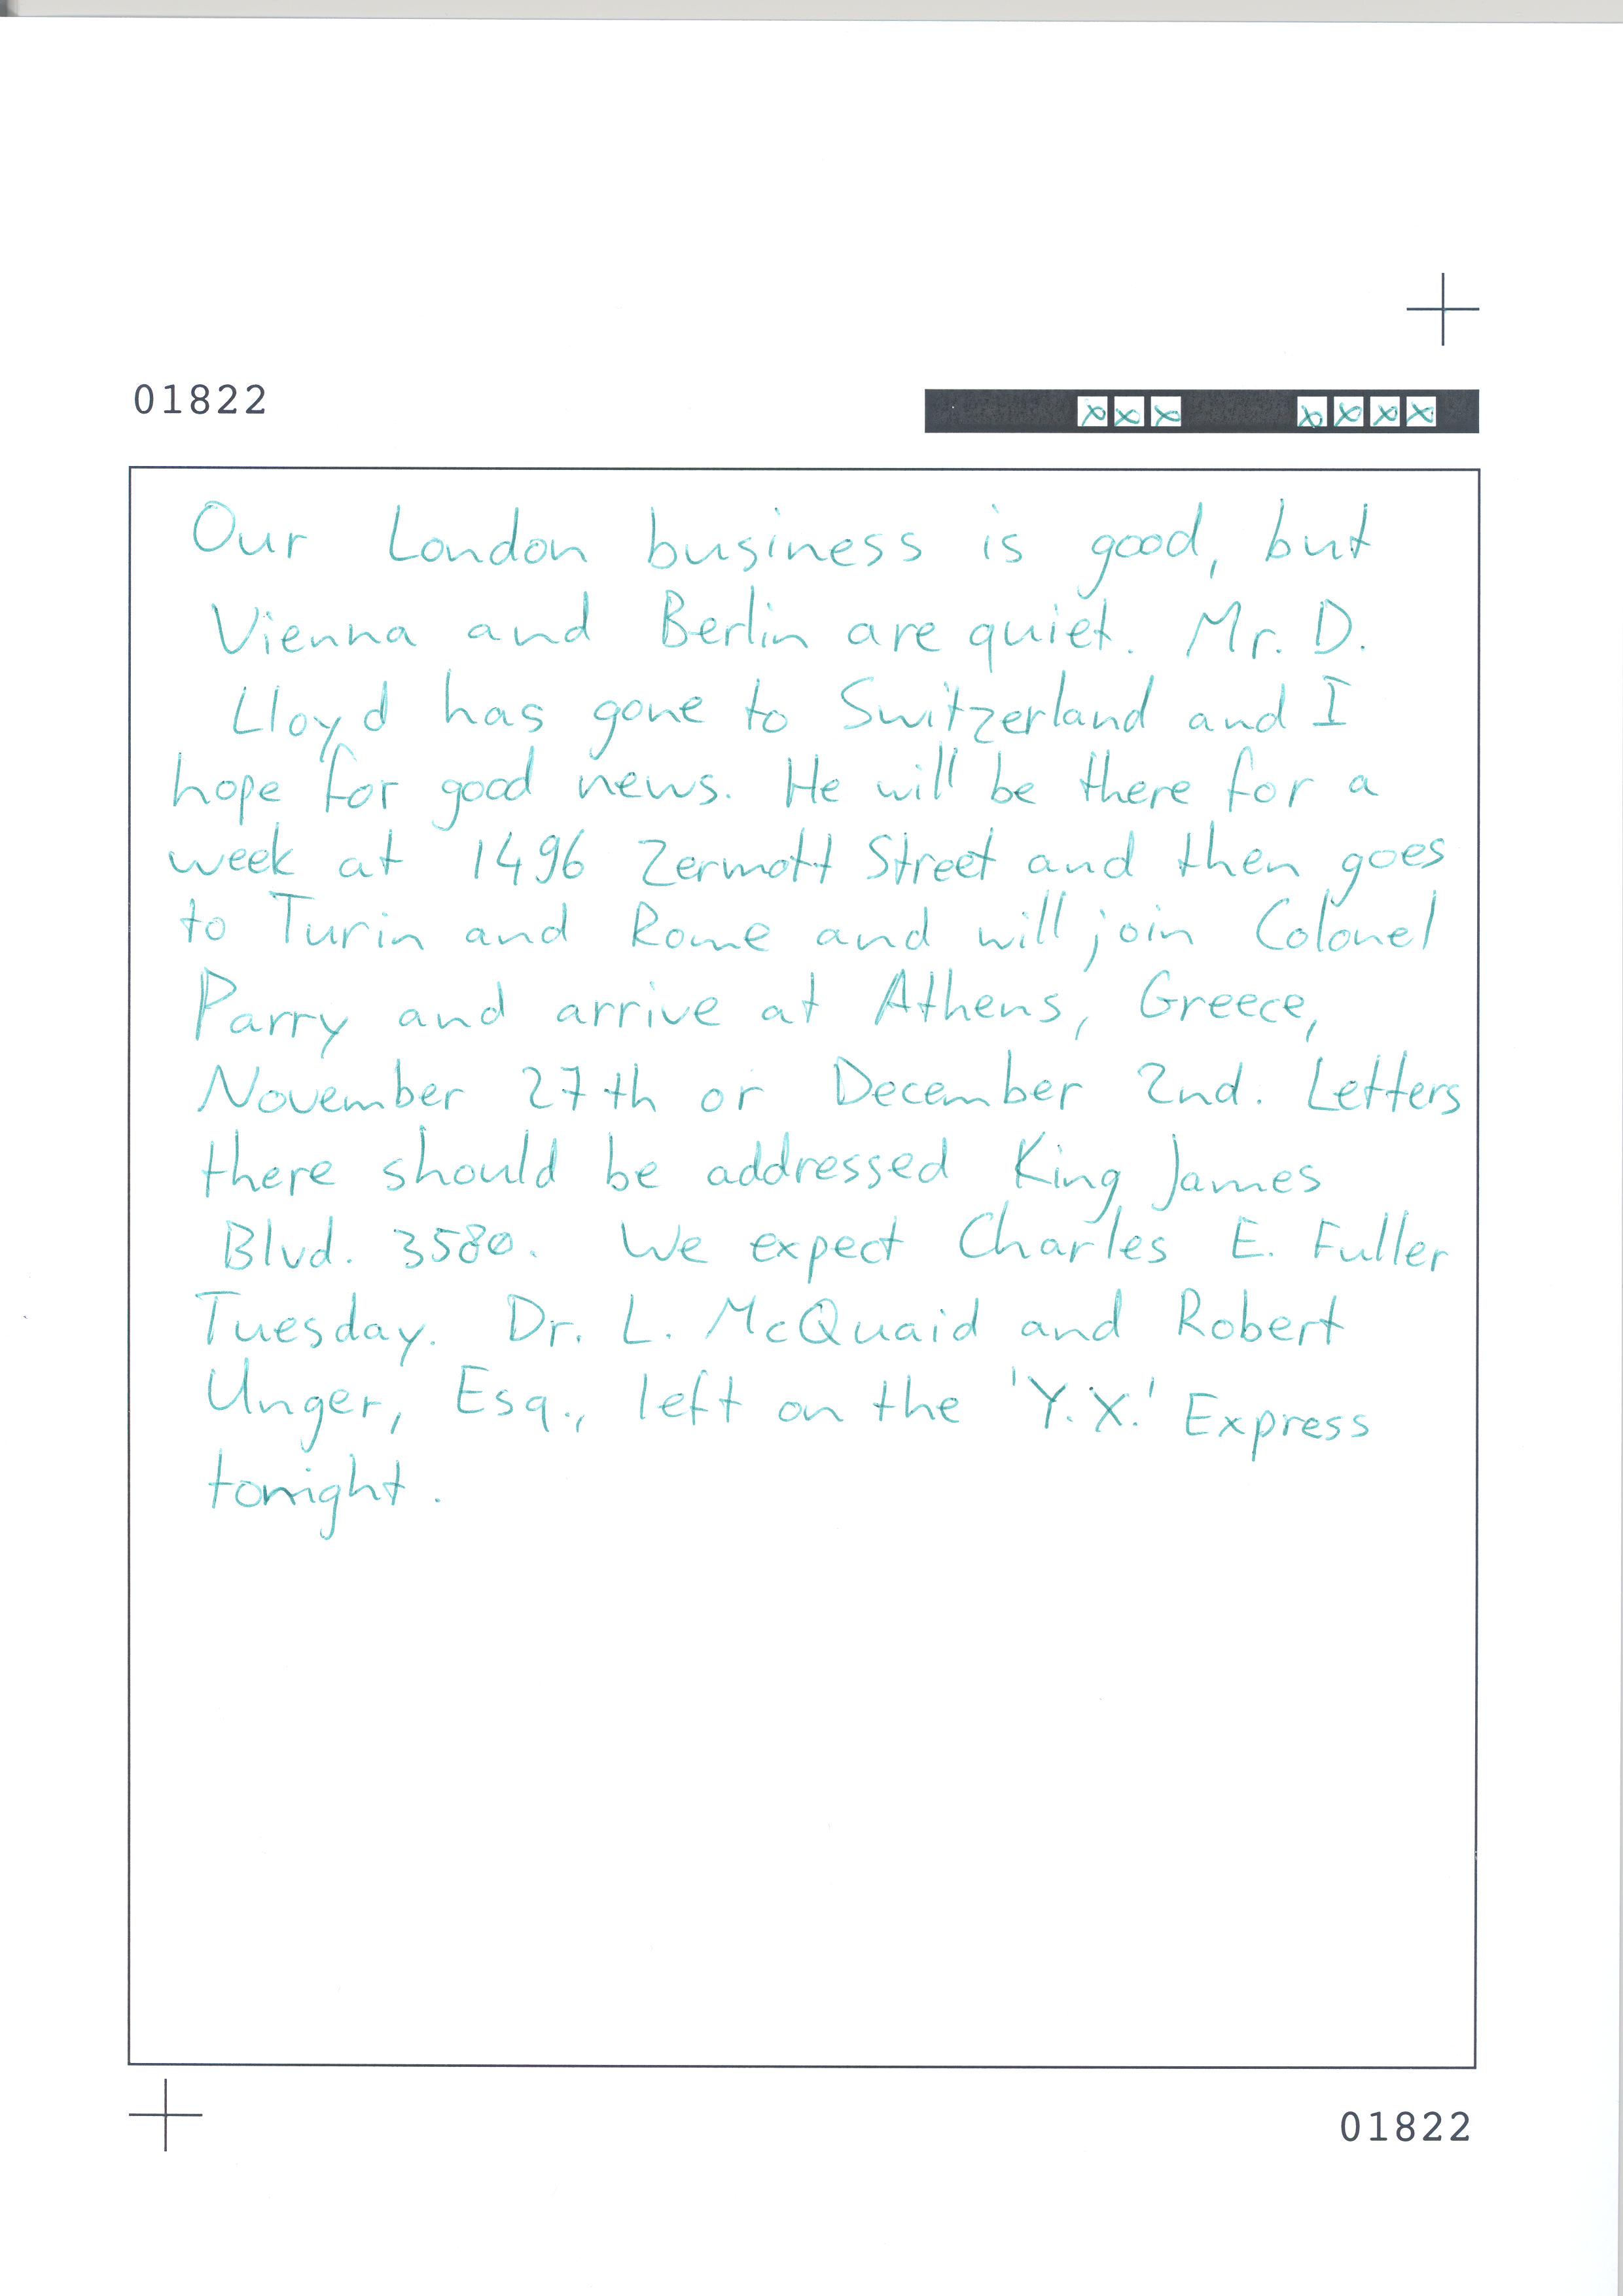 01822
Our London business is good, but
Vienna and Berlin are quiet. Mr. D.
Lloyd has gone to Switzerland and I
hope for good news. He will be there for a
week at 1496 Zermott Street and then goes
to Turin and Rome and will join Colonel
Parry and arrive at Athens, Greece,
November 27th or December 2nd. Letters
there should be addressed King James
Blvd. 3580. We expect Charles E. Fuller
Tuesday. Dr. L. McQuaid and Robert
Unger, Esq., left on the 'Y.X.' Express
tonight.
01822